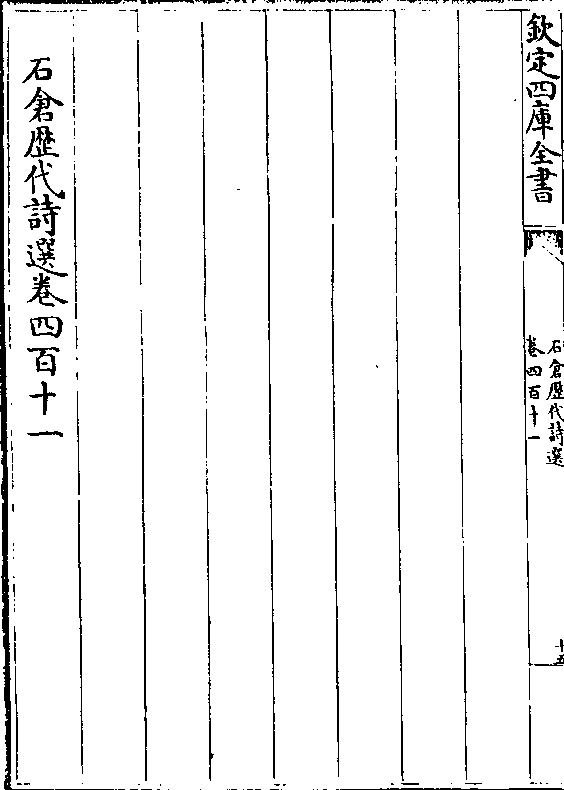 欽定四庫全書
石倉歷代詩選
卷四百十一
十五
石倉歷代詩選卷四百十一